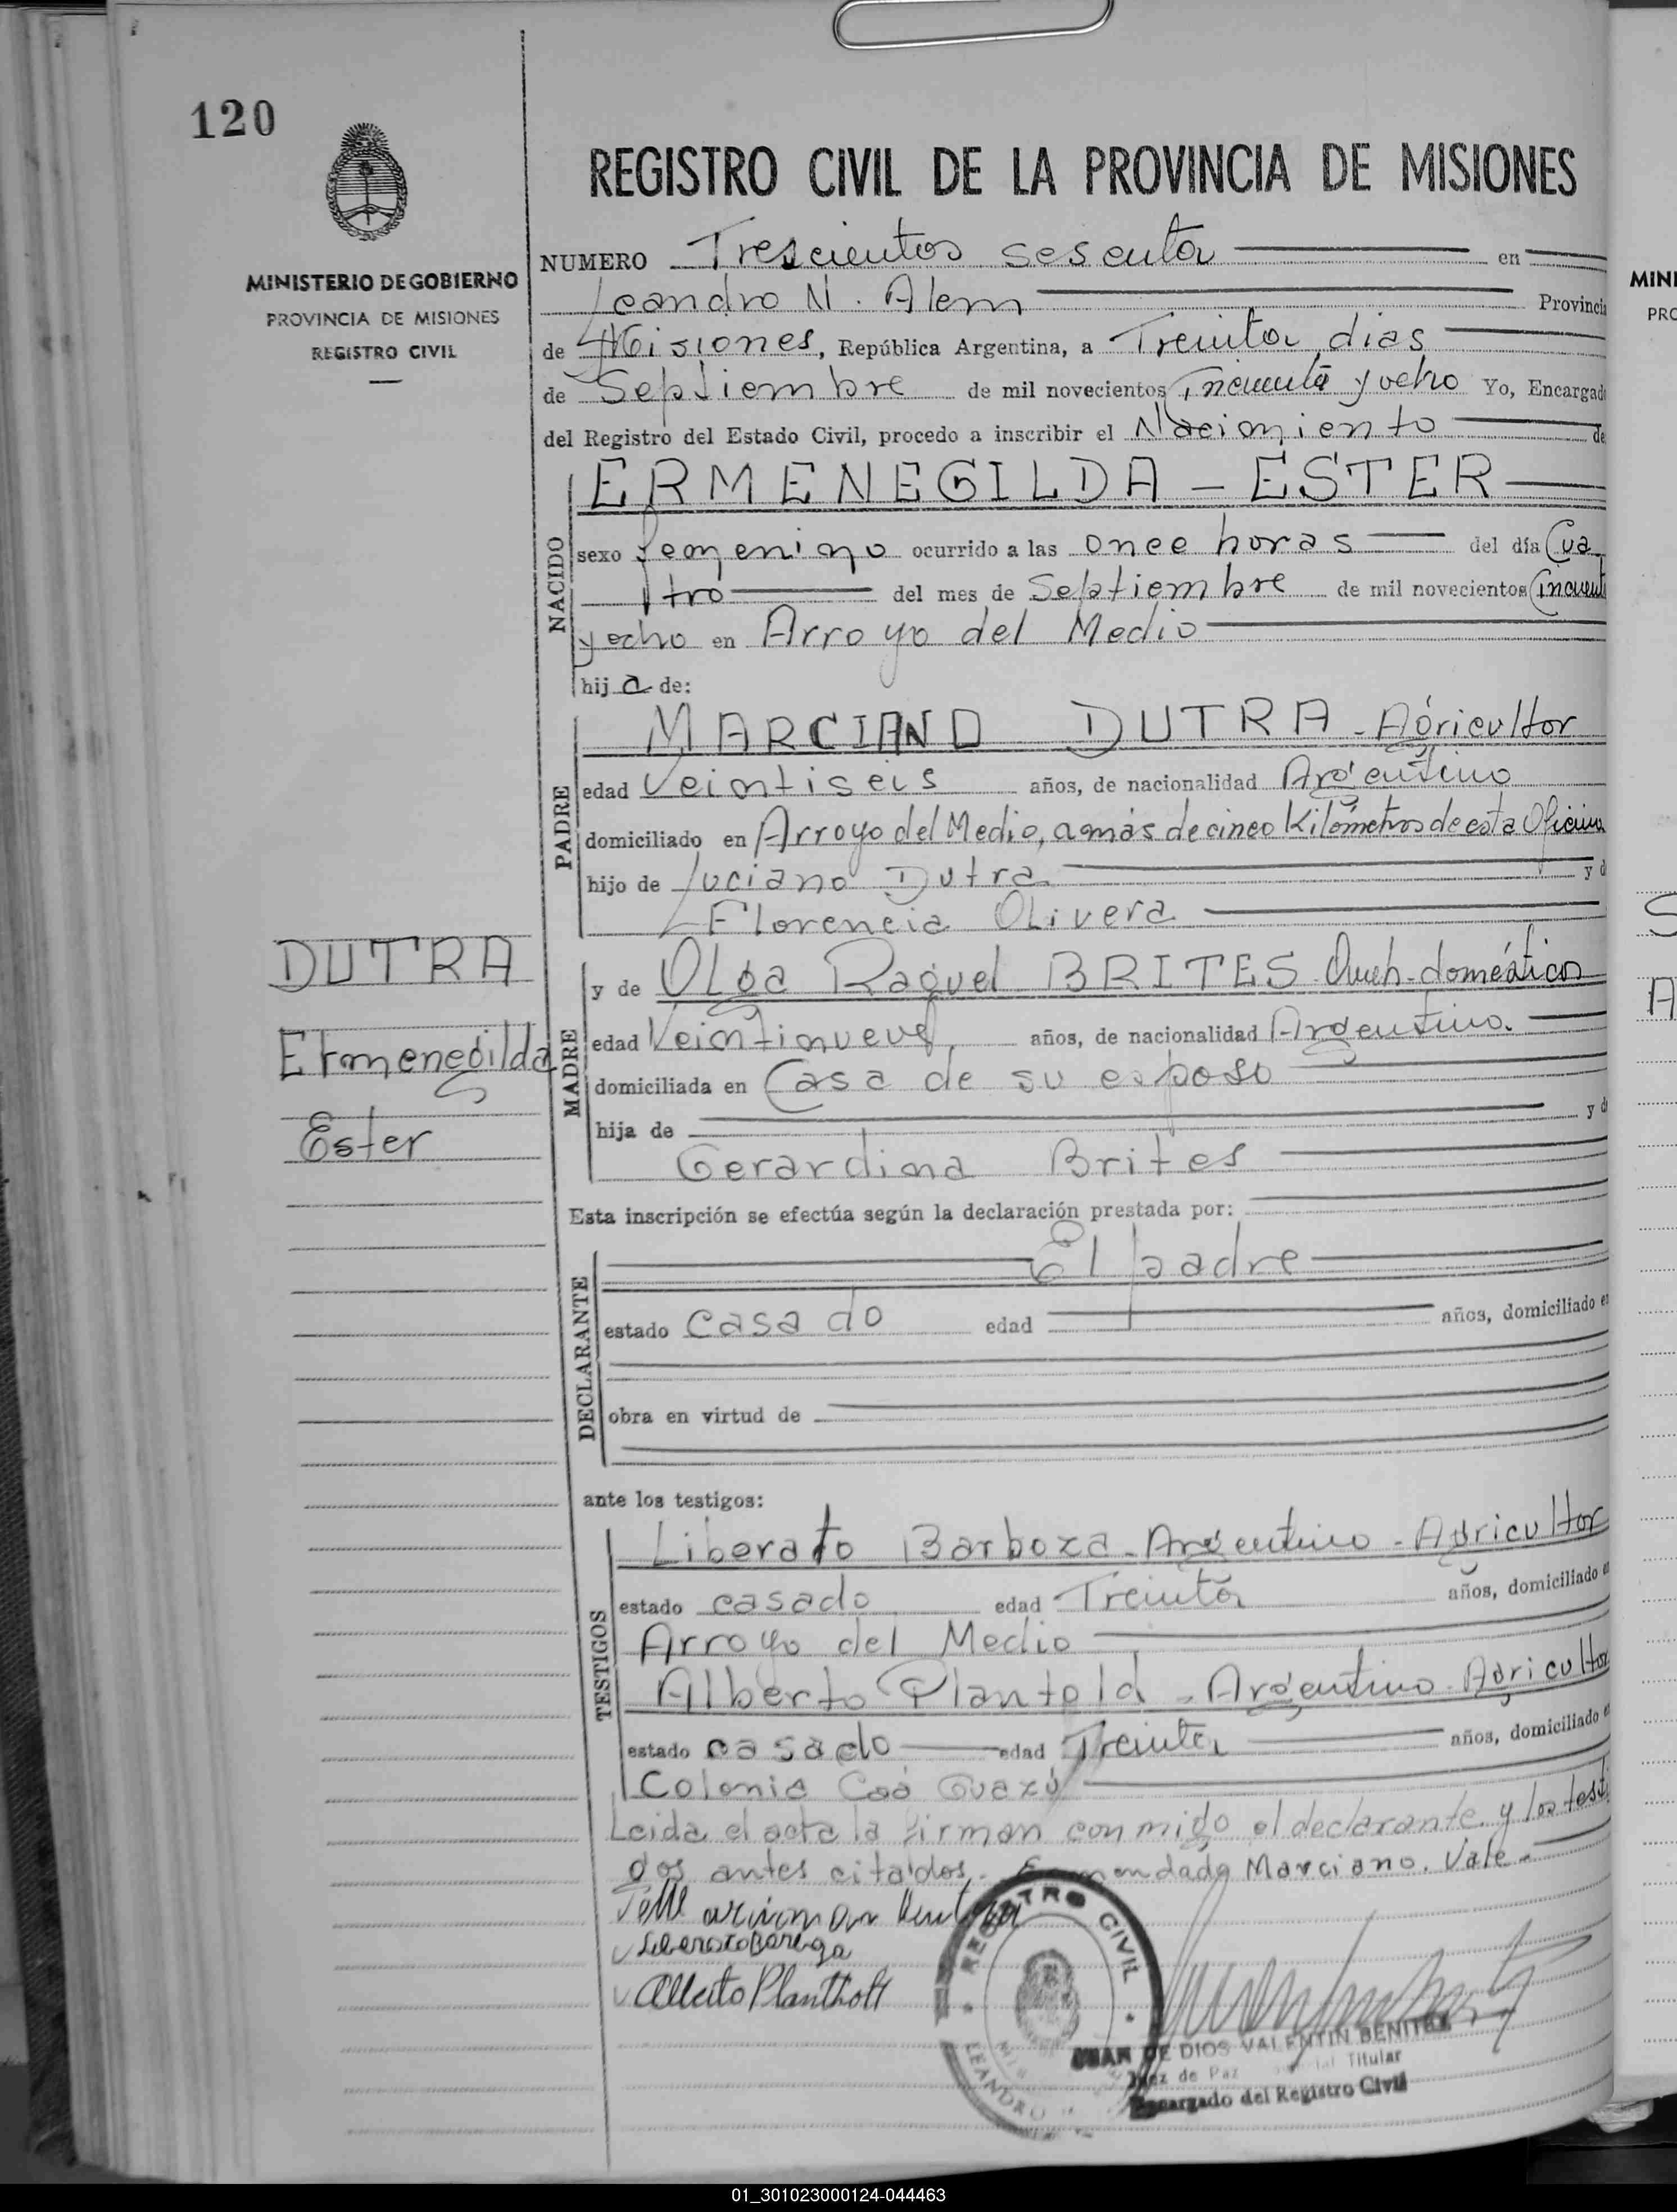 120
REGISTRO CIVIL DE LA PROVINCIA DE MISIONES
MINISTERIO DE GOBIERNO
PROVINCIA DE MISIONES
REGISTRO CIVIL
NUMERO Trescientos sesenta en
Leandro N. Alem Provincia
de Misiones, República Argentina, a Treinta dias
de Septiembre de mil novecientos cincuenta y ocho Yo, Encargado
del Registro del Estado Civil, procedo a inscribir el Nacimiento de
NACIDO
ERMENEGILDA - ESTER
sexo femenino ocurrido a las once horas del día Cua
tro del mes de Septiembre de mil novecientos Cincuenta
y ocho en Arroyo del Medio
hija de:
PADRE
MARCIANO DUTRA - Agricultor
edad Veintiseis años, de nacionalidad Argentino
domiciliado en Arroyo del Medio, a más de cinco Kilómetros de esta Oficina
hijo de Luciano Dutra y d
Florencia Olivera
DUTRA
Ermenegilda
Ester
MADRE
y de Olga Raquel BRITES Queh-domésticos
edad Veintinueve años, de nacionalidad Argentina.
domiciliada en Casa de su esposo
hija de y d
Gerardina Brites
Esta inscripción se efectúa según la declaración prestada por:
DECLARANTE
El padre
estado casado edad años, domiciliado en
obra en virtud de
ante los testigos:
TESTIGOS
Liberato Barboza - Argentino - Agricultor
estado casado edad Treinta años, domiciliado en
Arroyo del Medio
Alberto Plantold - Argentino - Agricultor
estado casado edad Treinta años, domiciliado en
Colonia Caá Guazú
Leida el acta la firman conmigo el declarante y los testi
gos antes citados. Enmendado Marciano. Vale.
Alberto Plantholt
REGISTRO CIVIL
LEANDRO
JUAN DE DIOS VALENTIN BENITEZ
Juez de Paz Titular
Encargado del Registro Civil
MINI
PRO
01_301023000124-044463